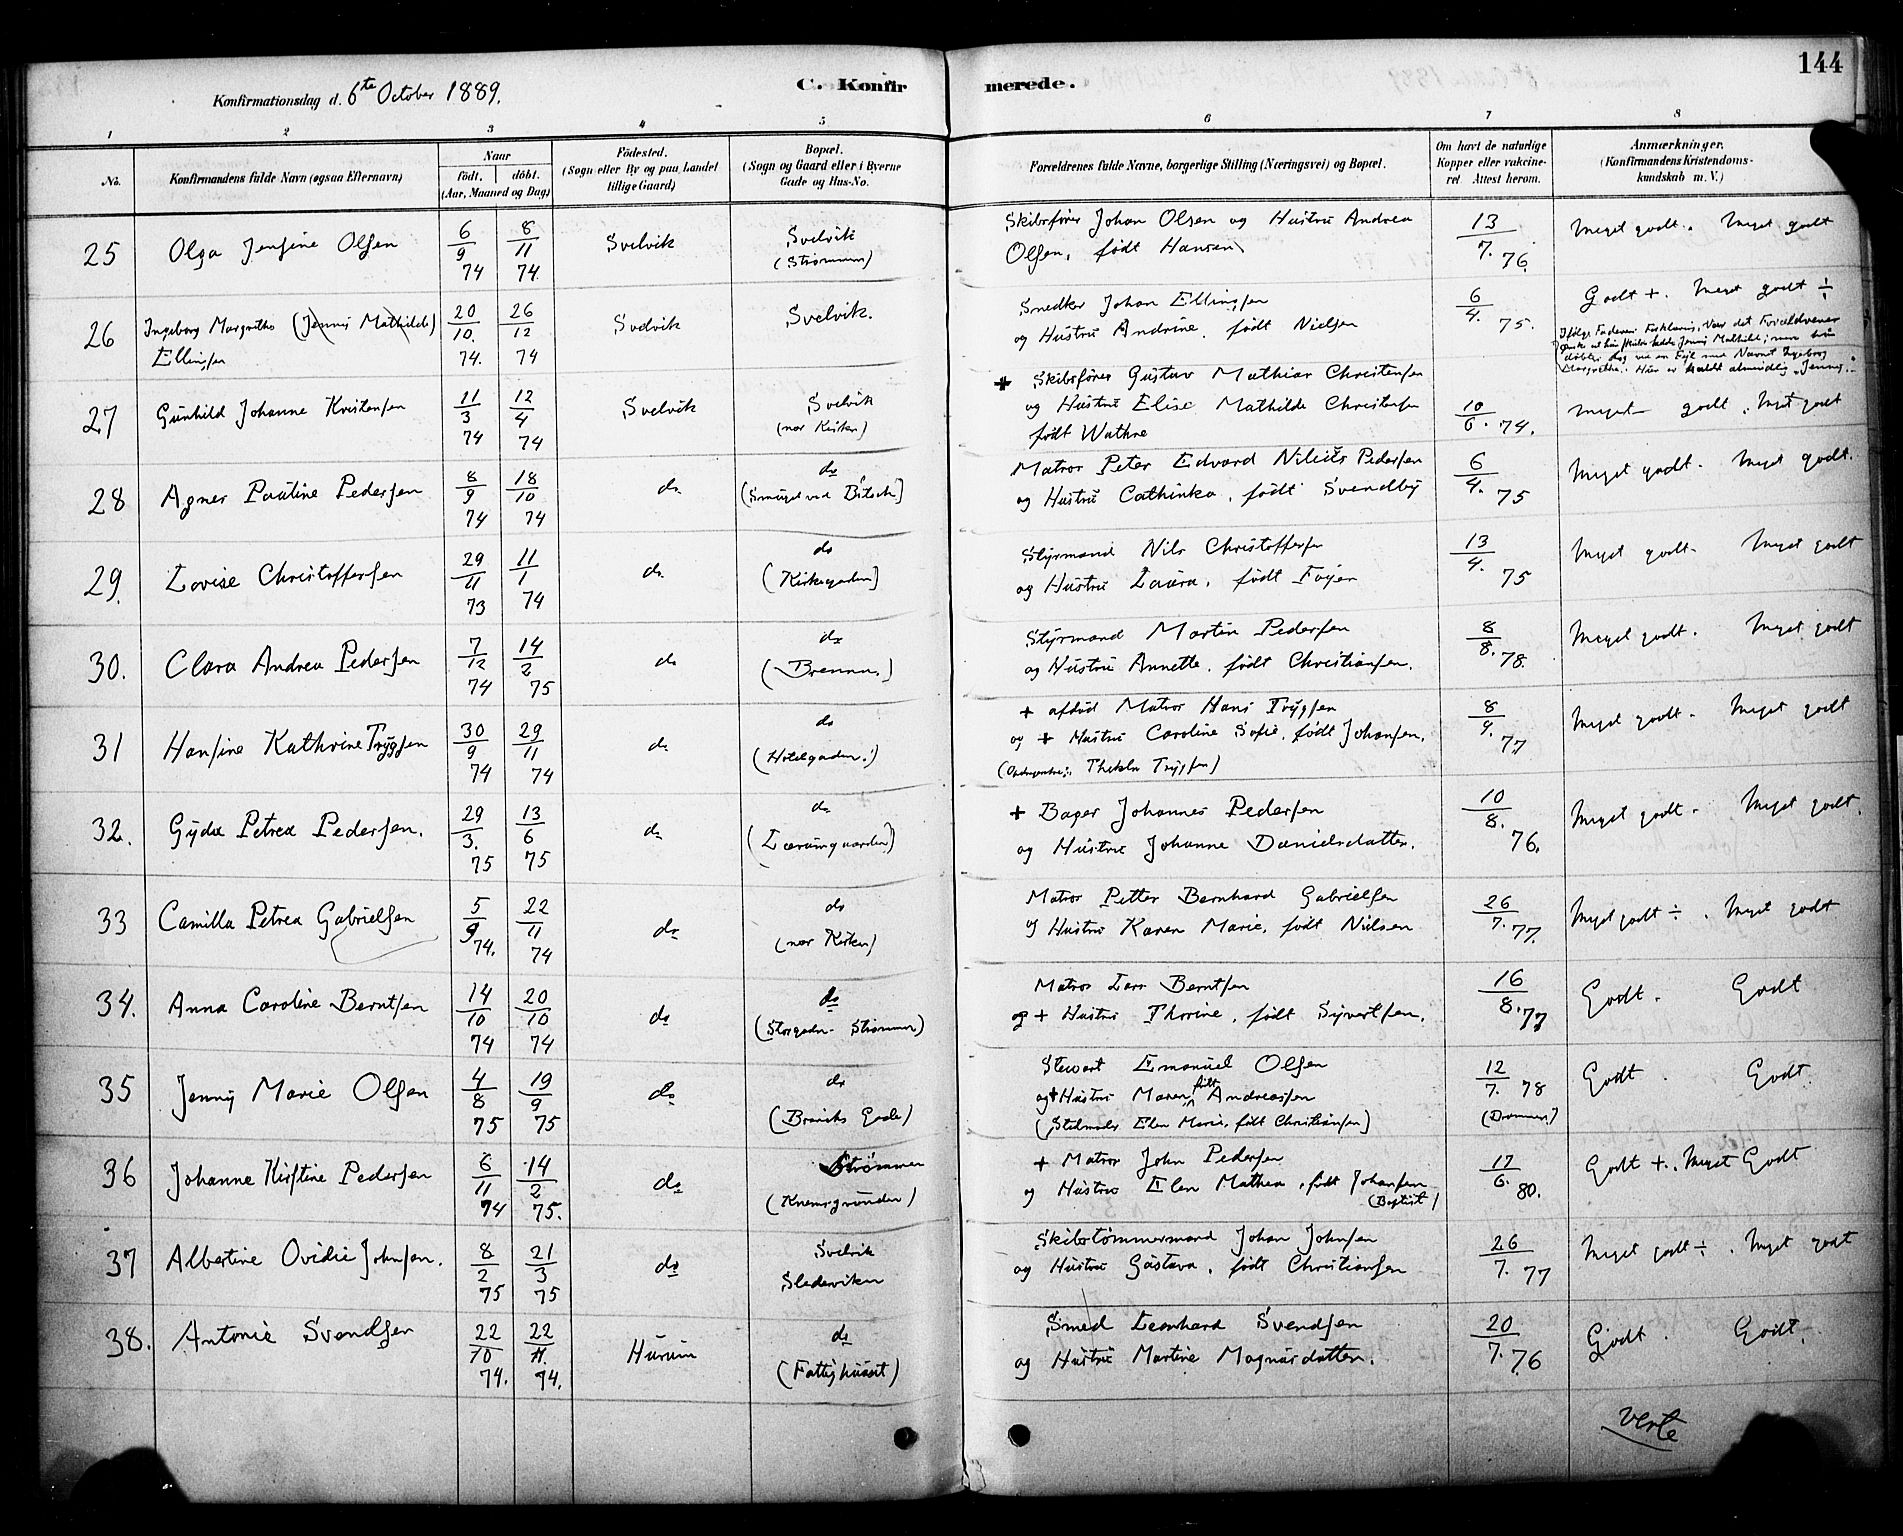 144
Konfirmationsdag d. 6te October 1889. C. Konfirmerede.
1 2 3 4 5 6 7 8
No. Konfirmandens fulde Navn (ogsaa Efternavn) Naar født. døbt. (Aar, Maaned og Dag) Fødested. (Sogn eller By og paa Landet tillige Gaard) Bopæl. (Sogn og Gaard eller i Byerne Gade og Hus-No. Forældrenes fulde Navne, borgerlige Stilling (Næringsvei) og Bopæl. Om havt de naturlige Kopper eller vakcineret Attest herom. Anmærkninger. (Konfirmandens Kristendomskundskab m. V.)
25 Olga Jensine Olsen 6/9 74 8/11 74 Svelvik Svelvik (Strømmen) Skibsfører Johan Olsen og Hustru Andrea
Olsen, født Hansen 13/7. 76. Meget godt. Meget godt
26 Ingeborg Margrethe (Jenny Mathilde)
Ellingsen 20/10. 74. 26/12 74 Svelvik Svelvik. Snedker Johan Ellingsen
og Hustru Andrine, født Nielsen 6/4. 75. Godt +. Meget godt ÷
Ifølge Faderens Forklaring, var det Forældrenes
Ønske at hun skulde hedde Jenny Mathilde; men hun
døbtes dog ved en Fejl med Navnet Ingeborg
Margrethe. Hun er kaldt almindelig "Jenny".
27 Gunhild Johanne Kristensen 11/3 74 12/4 74 Svelvik Svelvik (nær Kirken) + Skibsfører Gustav Mathias Christensen
og Hustru Elise Mathilde Christensen
født Wathne 10/6. 74. Meget godt. Meget godt
28 Agnes Pauline Pedersen 8/9 74 18/10 74 do do (Smuget ved Bitsch) Matros Peter Edvard Pedersen
og Hustru Cathinka, født Svendby 6/4. 75 Meget godt. Meget godt.
29. Lovise Christoffersen 29/11 73 11/1 74 do do (Kirkegaden) Styrmand Nils Christoffersen
og Hustru Laura, født Foyen 13/4. 75 Meget godt. Meget godt
30. Clara Andrea Pedersen 7/12 74 14/2 75 do do (Brenna.) Styrmand Martin Pedersen
og Hustru Annette, født Christiansen. 8/8. 78. Meget godt. Meget godt
31 Hansine Kathrine Trygsen 30/9 74 29/11 74 do do (Hotelgaden.) + afdød Matros Hans Trygsen
og + Hustru Caroline Sofie, født Johansen.
Thekla Trygsen) 8/4. 77 Meget godt. Meget godt
32. Gyda Petrea Pedersen. 29/3. 75 13/6 75 do do (Lærumgaarden) + Bager Johannes Pedersen
og Hustru Johanne Danielsdatter. 10/8. 76. Meget godt. Meget godt.
33 Camilla Petrea Gabrielsen 5/9 74. 22/11 74 do do (nær Kirken) Matros Petter Bernhard Gabrielsen
og Hustru Karen Marie, født Nielsen 26/7. 77. Meget godt ÷. Meget godt
34. Anna Caroline Berntsen 14/10 74 20/10 74 do do (Storgaden Strømmen) Matros Lars Berntsen
og + Hustru Thorine, født Syvertsen. 16/8. 77 Godt. Godt
35 Jenny Marie Olsen 4/8 75 19/9 75 do do (Brændts Gade) Stewart Emanuel Olsen
og + Hustru Maren født Andreassen
(Stedmoder Elen Marie, født Christiansen) 12/7. 78 (Drammen.) Godt. Godt.
36 Johanne Kirstine Pedersen 6/11 74 14/2 75. do Strømmen (Knemsgrunden) + Matros John Pedersen
og Hustru Elen Mathea, født Johansen
(Baptist) 17/6. 80. Godt +. Meget Godt
37 Albertine Ovidie Johnsen. 8/2 75 21/3 75 do Svelvik Sledeviken Skibstømmermand Johan Johnsen
og Hustru Gustava, født Christiansen 26/7. 77 Meget godt ÷. Meget godt
38. Antonie Svendsen 22/10 74. 22/11. 74. Hurum do (Fattighuset) Smed Leonhard Svendsen
og Hustru Martine Magnusdatter. 20/7. 76 Godt. Godt.
verte